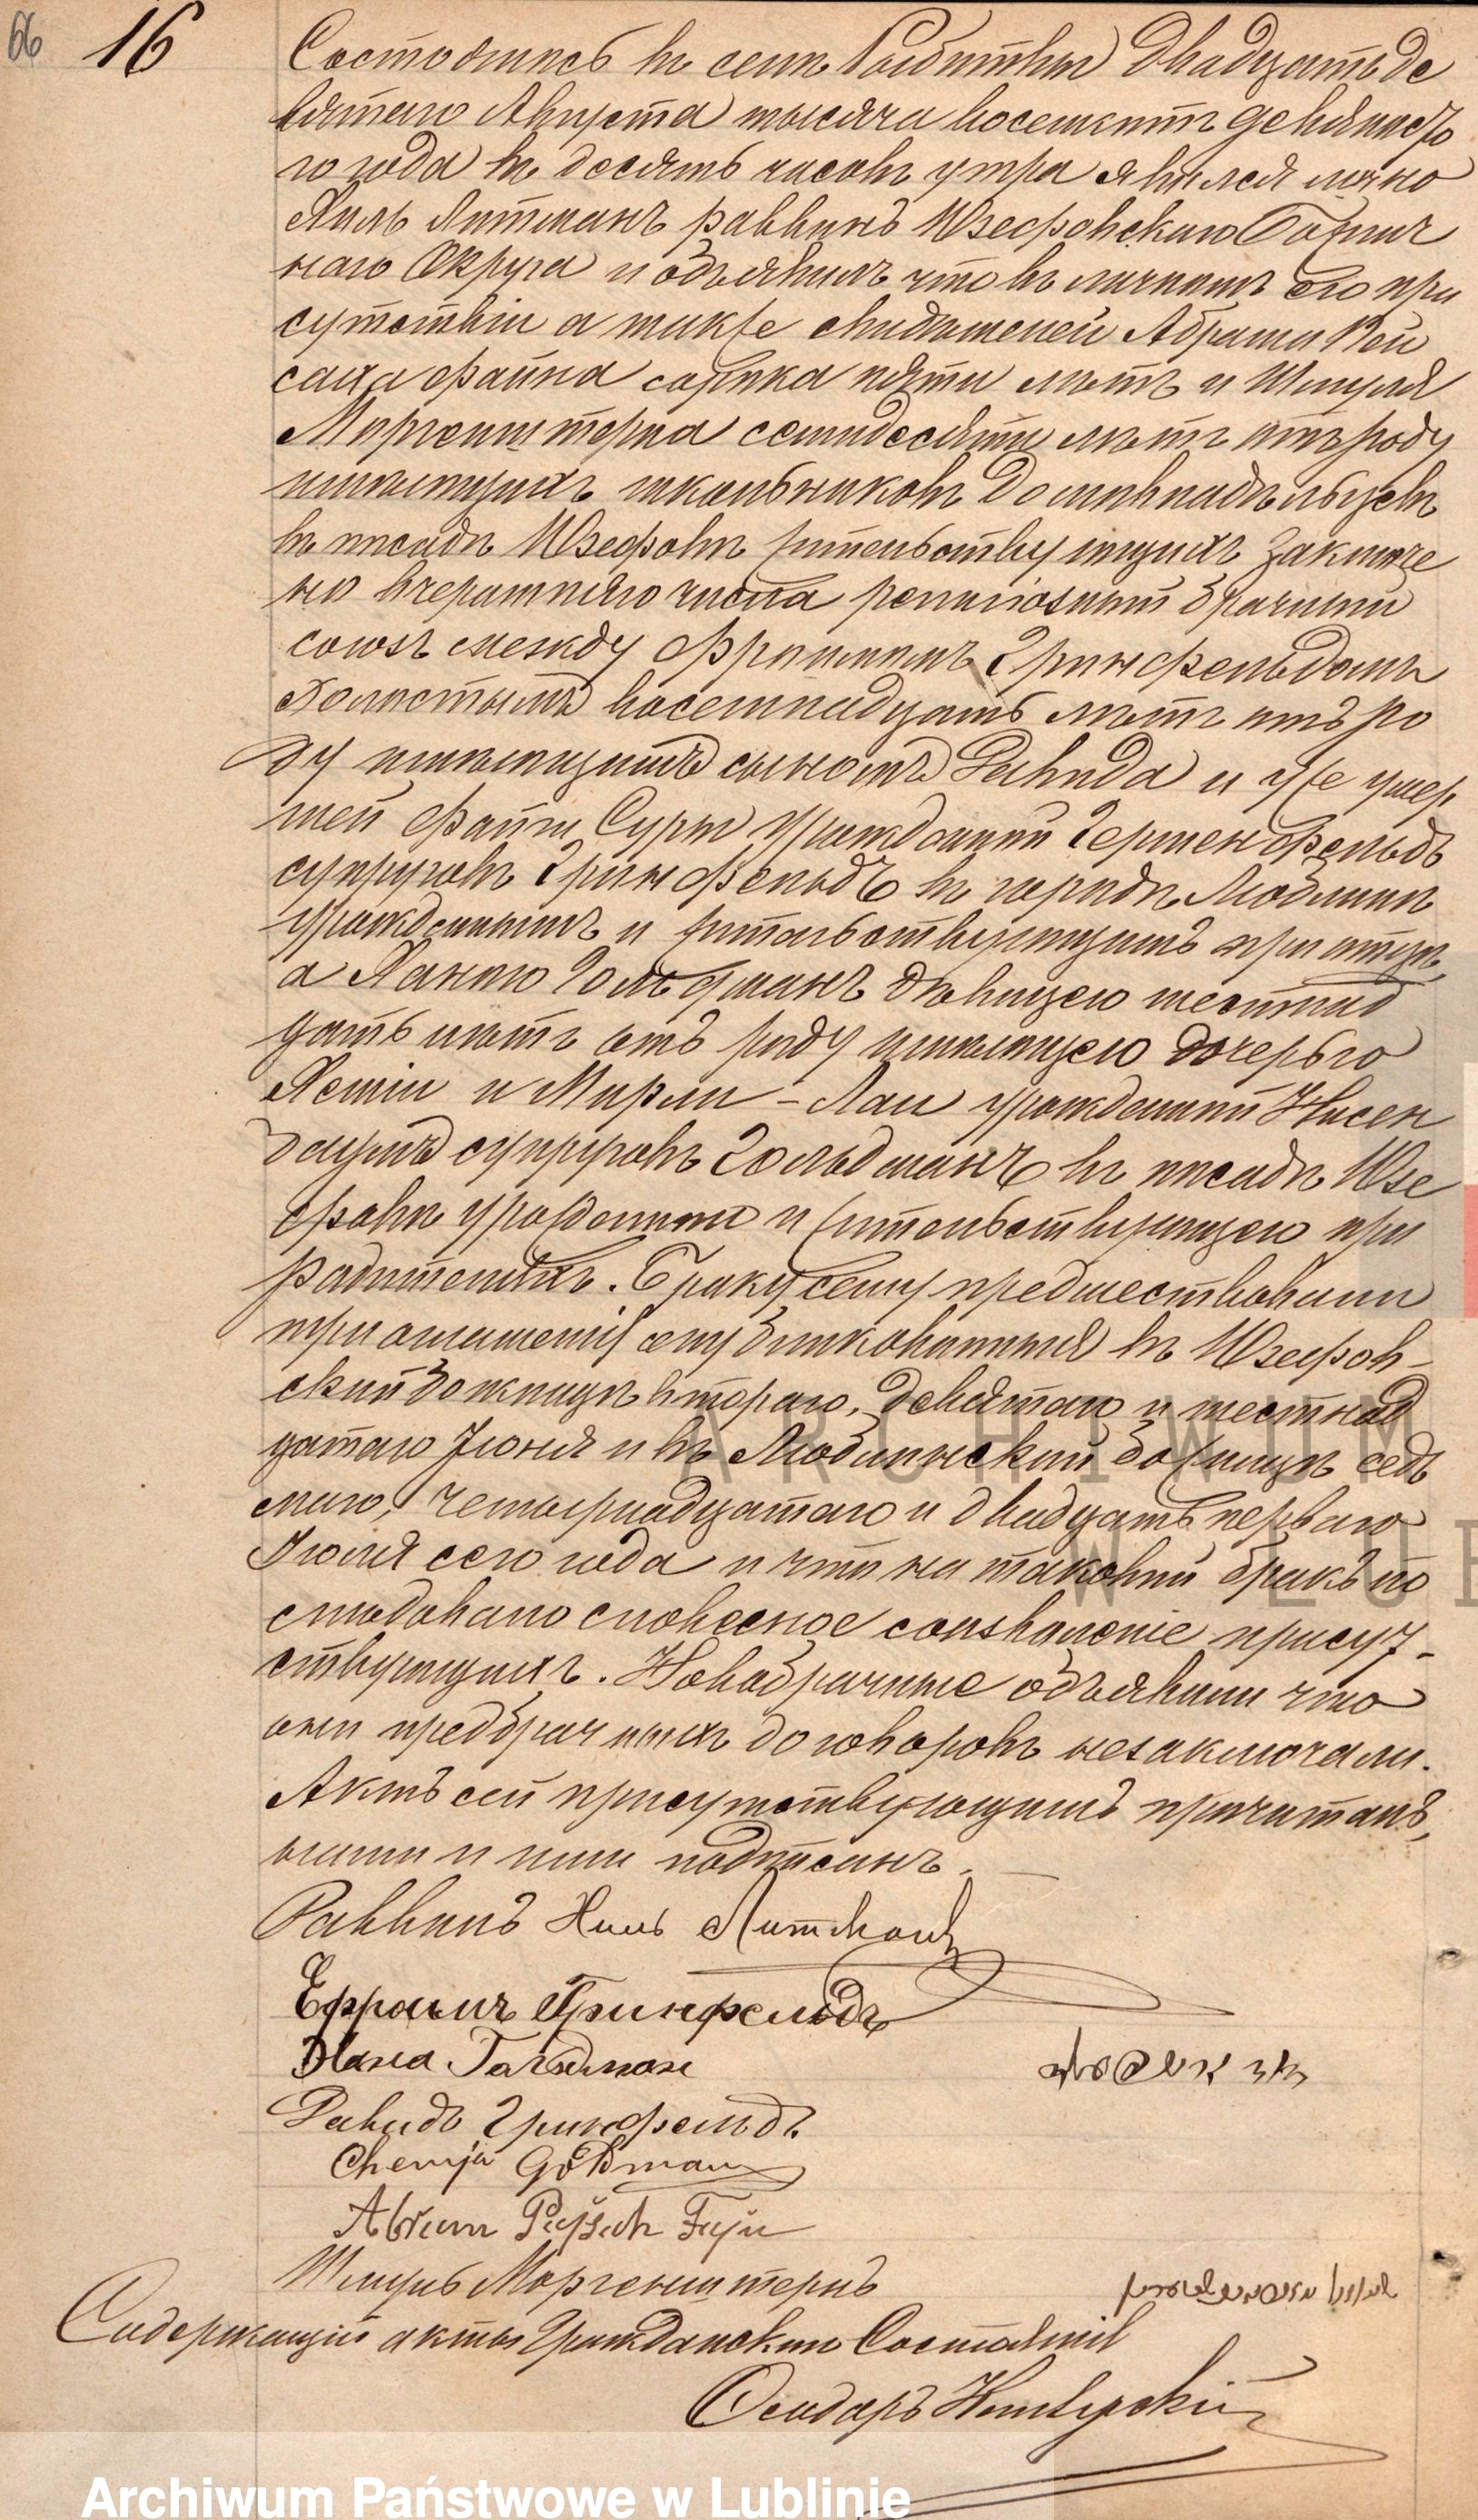 66 16
Состоялось въ семъ Событіи Двадцать де
вятаго Августа тысяча восемьсотъ девяносто
го года въ десять часовъ утра явился лично
Хиль Литманъ раввинъ Юзефовскаго Божнич
наго Округа и объявилъ что въ личномъ его при
сутствіи а также свидѣтелей Абрама Пей
саха Файна сорока пяти лѣтъ и Шмуля
Моргенштерна семидесяти лѣтъ отъ роду
имѣющихъ школьниковъ домовладѣльцевъ
въ посадѣ Юзефовѣ жительствующихъ заключе
но вчерашняго числа религіозный брачный
союзъ между Фроимомъ Гринфельдомъ
холостымъ восемнадцать лѣтъ отъ ро
ду имѣющимъ сыномъ Давида и уже умер
шей Файги Суры урожденной Гершенфельдъ
супруговъ Гринфельдъ въ городѣ Люблинѣ
урожденнымъ и жительствующимъ при отцѣ
а Ханою Гольдманъ дѣвицею шестнад
цать лѣтъ отъ роду имѣющею дочерью
Хеміи и Мирли - Лаи урожденной Нисен
баумъ супруговъ Гольдманъ въ посадѣ Юзе
фовѣ урожденною и жительствующею при
родителяхъ. Браку сему предшествовали
при оглашенія опубликованныя въ Юзефов-
ской божницѣ втораго, девятаго и шестнад
цатаго Іюня и въ Люблинской божницѣ седь
маго, четырнадцатаго и двадцать перваго
Іюля сего года и что на таковой бракъ по
слѣдовало словесное соизволеніе присут-
ствующихъ. Новобрачные объявили что
они предбрачныхъ договоровъ незаключали.
Актъ сей присутствующимъ прочитанъ,
нами и ими подписанъ.
Раввинъ Хиль Литманъ
Ефроимъ Гринфельдъ
Хана Гольдман
Давидъ Гринфельдъ
Chemja Goldman
Abram Pejsach Fajn
Шмуль Моргенштернъ
Содержащій акты Гражданскаго Состоянія
ARCHIWUM
W LUB
Archiwum Państwowe w Lublinie